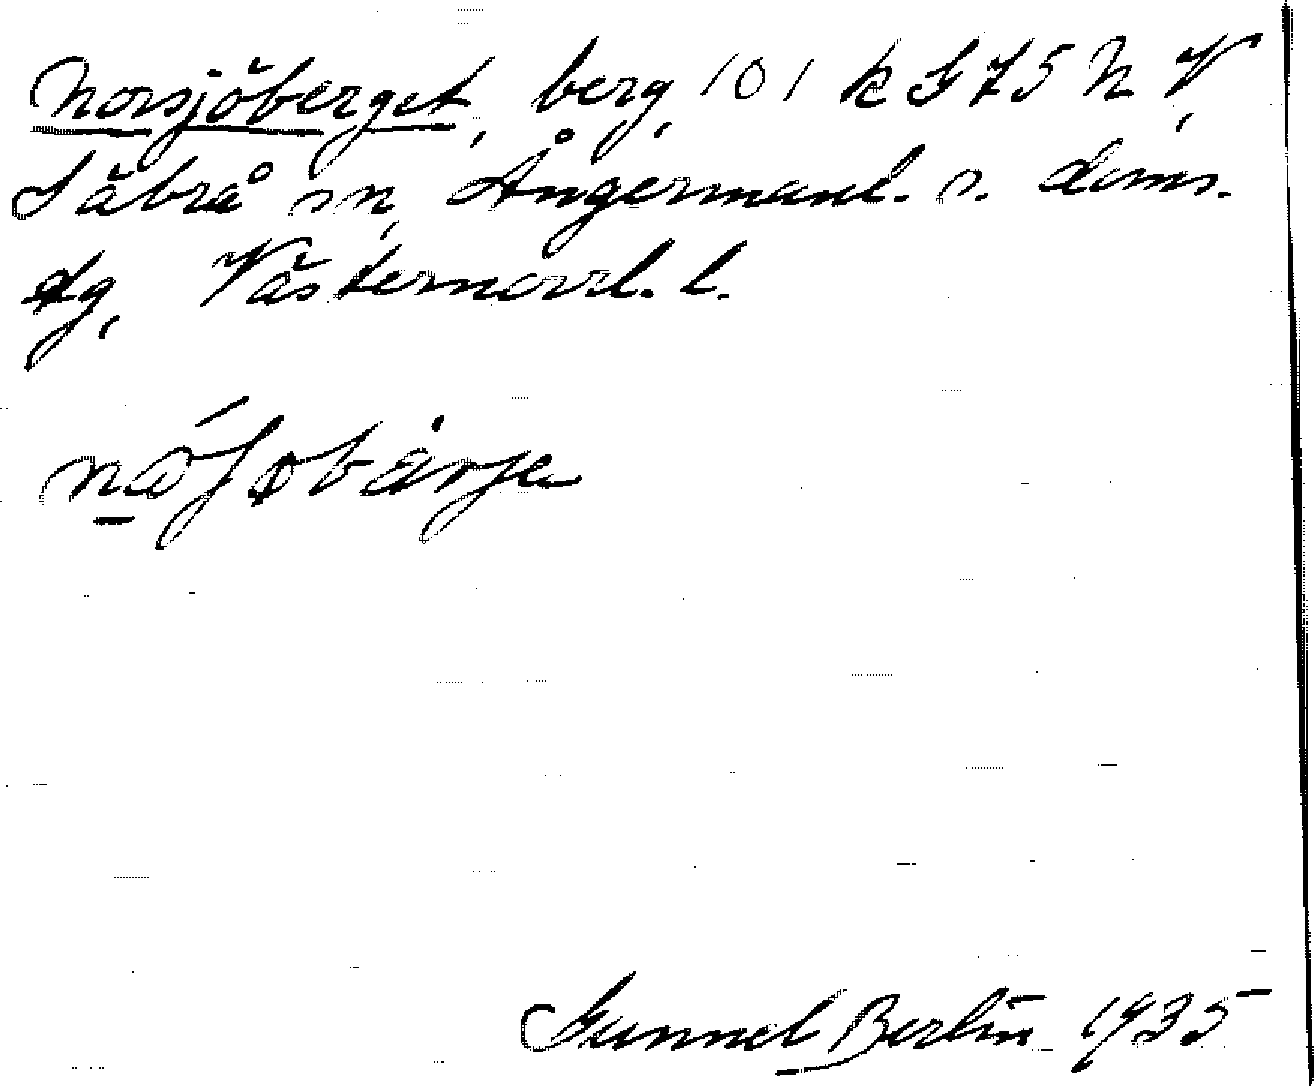 Norsjöberget, berg, 101 k G 75 N V,
Säbrå sn, Ångermanl. s. doms.
dg, Västernorrl. l.
Gunnel Berlin 1935